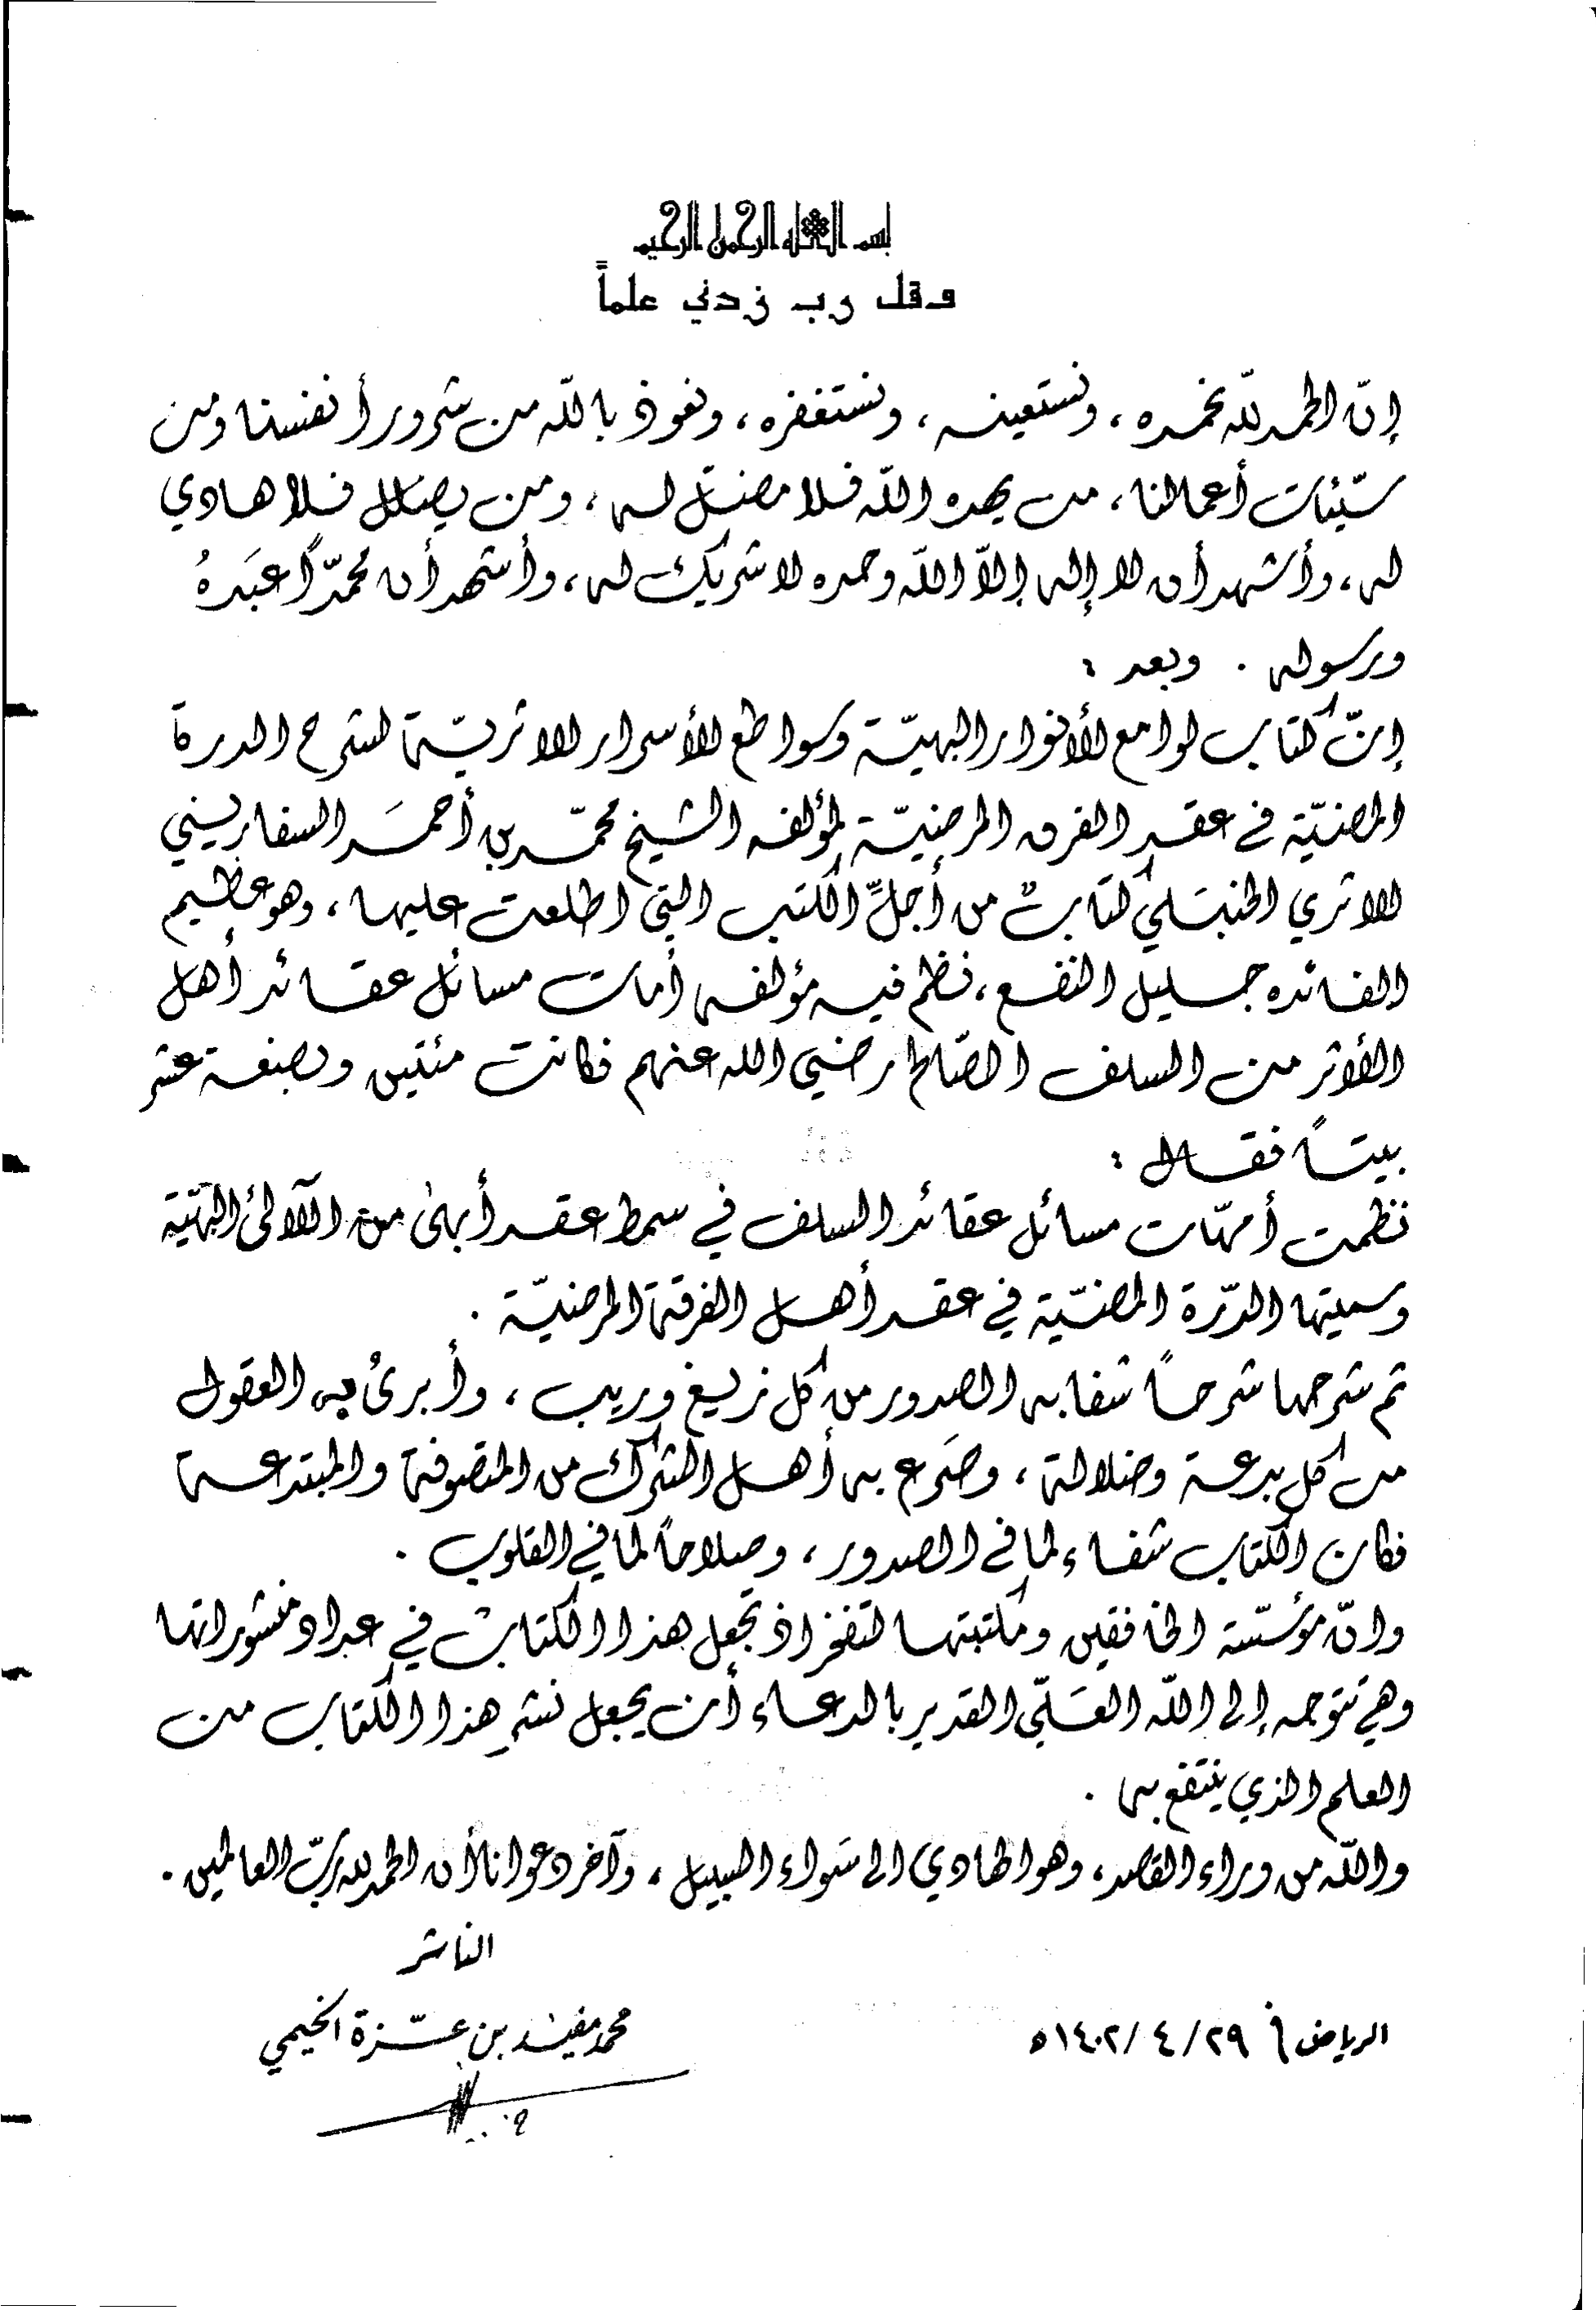 بسم الله الرحمن الرحيم
وقل رب زدني علماً
إنّ الحمد لله نحمده ، ونستعينه ، ونستغفره ، ونعوذ بالله من شرور أنفسنا ومن
سيّئات أعمالنا ، من يهده الله فلا مضلّ له ، ومن يضلل فلا هادي
له ، وأشهد أن لا إله إلاّ الله وحده لا شريك له ، وأشهد أن محمّدًا عبَدهُ
ورسوله . وبعد :
إنّ كتاب لوامع الأنوار البهيّة وسواطع الأسرار الاثريّة لشرح الدرة
المضيّة في عقد الفرق المرضيّة لمؤلفه الشيخ محمّد بن أحمَد السفاريني
الاثري الحنبَلي كتابٌ من أجلِّ الكتب التي اطلعت عليها ، وهو عظيم
الفائده جليل النفع ، نظم فيه مؤلفه أمات مسائل عقائد أهل
الأثر من السلف الصّالح رضي الله عنهم فكانت مئتين وبضعة عشر
بيتاً فقال :
نظمت أمهّات مسائل عقائد السلف في سمط عقد أبهى من الآلالئ البهّية
وسميتها الدّرة المضيّة في عقد أهل الفرقة المرضيّة .
ثم شرحها شرحاً شفا به الصدور من كل زيغ وريب ، وأبرئُ به العقول
من كل بدعة وضلالة ، وصَرع به أهل الشرك من المتصوفة والمبتدعة
فكان الكتاب شفاء لما في الصدور ، وصلاحاً لما في القلوب .
وانّ مؤسّسة الخافقين ومكتبتها لتفخر اذ تجعل هذا الكتاب في عداد منشوراتها
وهي تتوجه إلى الله العَليّ القدير بالدعاء أن يجعل نشر هذا الكتاب من
العلم الذي ينتفع به .
والله من وراء القصد ، وهو الهادي الى سَواء السبيل ، وآخر دعوانا أن الحمد لله ربّ العالمين .
الناشر
محمد مفيد بن عزّة الخيمي
الرياض في ٢٩/ ٤/ ١٤٠٢ه